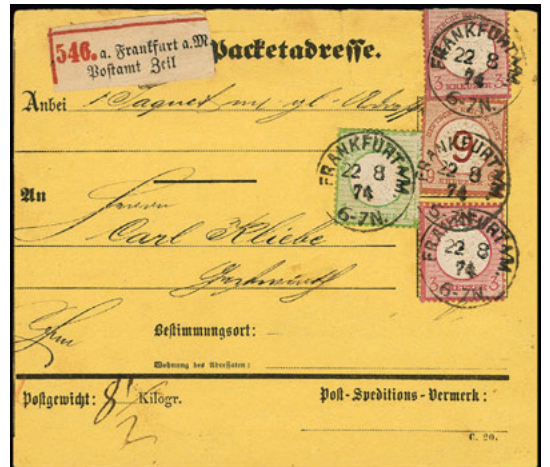 546. a. Frankfurt a.M
Postamt Zeil
Packetadresse.
Anbei 1 Paquet m/ gl. Adresse
FRANKFURT A/M.
22 8
74
6-7N.
3 KREUZER 3
FRANKFURT A/M.
22 8
74
9
FRANKFURT A/M.
22 8
74
6-7N.
FRANKFURT A/M.
22 8
74
6-7N.
3 KREUZER 3
An
Herrn
Carl Kliebe
Bestimmungsort:
Wohnung des Adressaten:
Postgewicht: 8 1/2 Kilogr.
Post-Speditions-Vermerk:
C. 20.